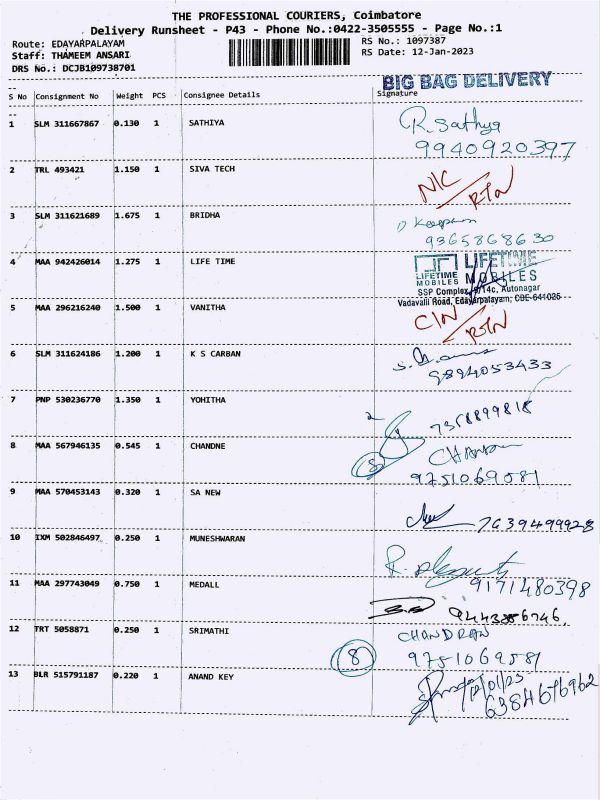 THE PROFESSIONAL COURIERS, Coimbatore
Delivery Runsheet - P43 - Phone No.:0422-3505555 - Page No.:1
Route: EDAYARPALAYAM
Staff: THAMEEM ANSARI
DRS No.: DCJB109738701
RS No.: 1097387
RS Date: 12-Jan-2023
BIG BAG DELIVERY
S No Consignment No Weight PCS Consignee Details Signature
1 SLM 311667867 0.130 1 SATHIYA R. Sathya
9940920397
2 TRL 493421 1.150 1 SIVA TECH N/C
RTN
3 SLM 311621689 1.675 1 BRIDHA
9365868630
4 MAA 942426014 1.275 1 LIFE TIME LIFETIME MOBILES
LIFETIME
MOBILES
SSP Complex, 9/14c, Autonagar
Vadavalli Road, Edayarpalayam, CBE-641025
5 MAA 296216240 1.500 1 VANITHA C/N
RTN
6 SLM 311624186 1.200 1 K S CARBAN
9894053433
7 PNP 530236770 1.350 1 YOHITHA 2
7358899818
8 MAA 567946135 0.545 1 CHANDNE
8 9751069581
9 MAA 570453143 0.320 1 SA NEW
7639499928
10 IXM 502846497 0.250 1 MUNESHWARAN
9171480398
11 MAA 297743049 0.750 1 MEDALL
9443356746
12 TRT 5058871 0.250 1 SRIMATHI CHANDRAN
8 9751069581
13 BLR 515791187 0.220 1 ANAND KEY
6384676962